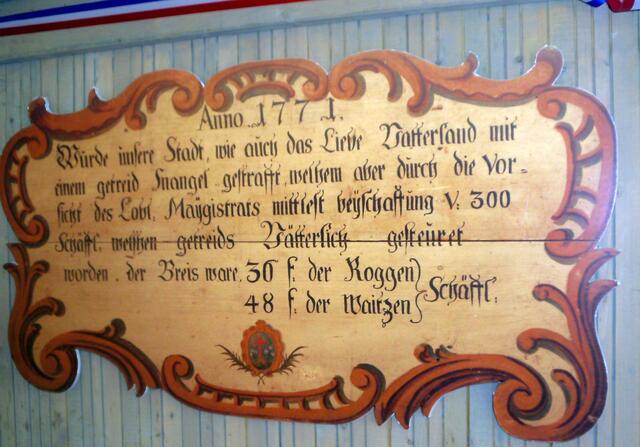 Anno 1771.
Würde unsere Stadt, wie auch das Liebe Vatterland mit
einem getreid Mangel gestrafft, welchem aber durch die Vor=
sicht des Lobl. Maÿgistrats mittlest beÿschaffung v. 300
Schäffl. weitzen getreids Vätterlich gesteuret
worden. der Breis ware. 36 f. der Roggen
48 f. der Waitzen } Schäffl.